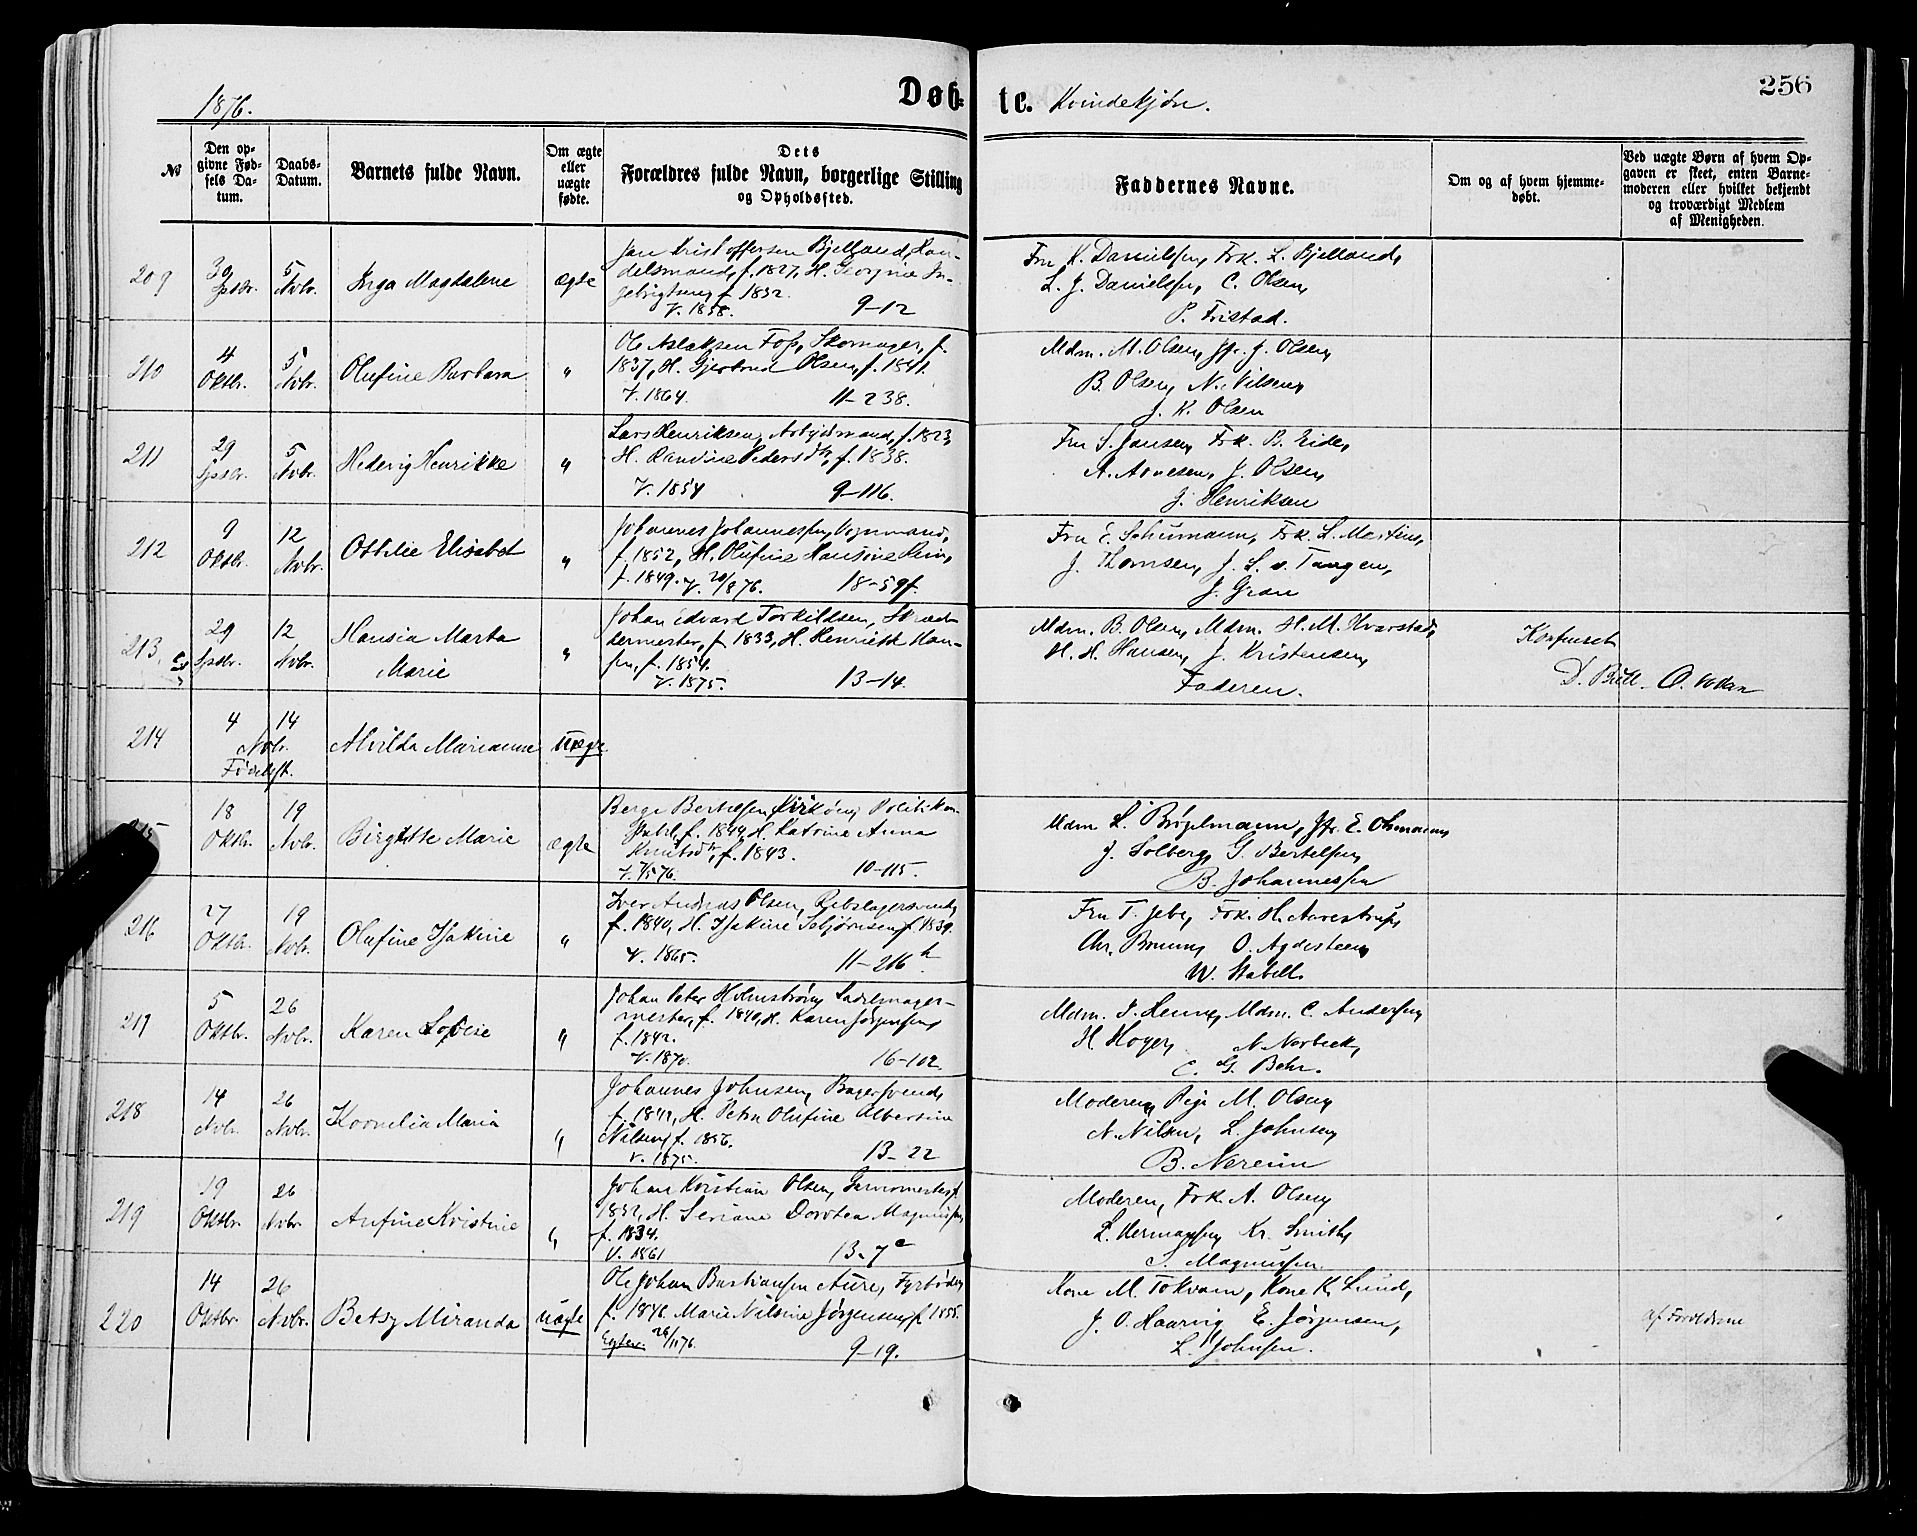 1876.
Døb=
te. Kvindekjøn.
256
№
Den op-
givne Fød-
sels Da-
tum.
Daabs-
Datum.
Barnets fulde Navn.
Om ægte
eller
uægte
fødte.
Dets
Forældres fulde Navn, borgerlige Stilling
og Opholdssted.
Faddernes Navne.
Om og af hvem hjemme-
døbt.
Ved uægte Børn af hvem Op-
gaven er skeet, enten Barne-
moderen eller hvilket bekjendt
og troværdigt Medlem
af Menigheden.
209
30 Sptbr.
5 Nvbr.
Inga Magdalene
ægte
Jan Kristoffersen Bjelland, Han-
delsmand, f. 1827, H. Georgine In-
gebrigtsen, f. 1832.
V. 1858. 9-12
Fru K. Danielsen, Frk. L. Bjelland,
L. J. Danielsen, C. Olsen,
P. Fristad.
210
4 Oktbr.
5 Nvbr.
Olufine Barbara
"
Ole Aslaksen Foss, Skomager, f.
1837, H. Gjertrud Olsen, f. 1841.
V. 1864. 11-238.
Mdm. M. Olsen, Jfr. J. Olsen,
B. Olsen, N. Nilsen,
J. K. Olsen
211
29 Sptbr.
5 Nvbr.
Hedevig Henrikke
"
Lars Henriksen, Arbejdsmand, f. 1823,
H. Randine Pedersdtr, f. 1838.
V. 1854 9-116.
Fru S. Jansen, Frk. B. Eide,
A. Arnesen, J. Olsen,
J. Henriksen
212
9 Oktbr.
12 Nvbr.
Ottilie Elisabet
"
Johannes Johannessen, Vognmand,
f. 1852, H. Olufine Hansine
f. 1849. V. 20/8 76. 18-59f.
Fru E. Schumann, Frk. L. Martins,
J. Thomsen, J. S. v. Tangen,
J. Gran
213
29 Sptbr.
12 Nvbr.
Hansia Marta
Marie
"
Johan Edvard Torkildsen, Skræd-
dermester, f. 1833, H. Henriette Han-
sen, f. 1854.
V. 1875. 13-14.
Mdm. B. Olsen, Mdm. H. M. Kvarstad,
H. H. Hansen, J. Kristensen,
Faderen.
D. Bull
214
4 14
Nvbr.
Fødselsst.
Alvilda Marianne
uægte
18 Oktbr.
19 Nvbr.
Birgitte Marie
ægte
Berge Bertelsen Kirkøen, Politikon-
stabel, f. 1849, H. Katrine Anna
Knutsdtr, f. 1843.
V. 7/5 76. 10-115.
Mdm L. Brøgelmann, Jfr. E. Ohmann,
J. Solberg, G. Bertelsen,
B. Johannessen
216
27 Oktbr.
19 Nvbr.
Olufine Isakine
"
Iver Andreas Olsen, Rebslagersvend,
f. 1840, H. Isakine Sebjørnsen, f. 1839.
V. 1865. 11-216h
Fru T. Jebe, Frk. H. Aarestrup,
Chr. Bruun, O. Agdesteen,
W. Stabell.
217
5 Oktbr.
26 Nvbr.
Karen Lovise
"
Johan Peter Holmstrøm, Sadelmager-
mester, f. 1840, H. Karen Jørgensen,
f. 1842.
V. 1870. 16-102.
Mdm. J. Henne, Mdm. C. Andersen,
H. Hoyer, N. Norbeck,
C. G. Behr.
218
14 Nvbr.
26 Nvbr.
Kornelia Maria
"
Johannes Johnsen, Bagersvend,
f. 1841, H. Petra Olufine Albertine
Nilsen, f. 1856.
V. 1875. 13-22
Moderen, Pige M. Olsen,
N. Nilsen, L. Johnsen,
B. Nereim
219
19 Oktbr.
26 Nvbr.
Anfine Kristine
"
Johan Kristian Olsen, Garvermester, f.
1832, H. Seriane Dorotea Magnussen,
f. 1834.
V. 1861 13-7c
Moderen, Frk. A. Olsen,
L. Hermansen, Kr. Smith,
S. Magnussen
220
14 Oktbr.
26 Nvbr.
Betsy Miranda
uægte
Ole Johan Bastiansen Aure, Fyrbøder,
f. 1846. Marie Nilsine Jørgensen, f. 1855.
Egtev. 26/11 76. 9-19.
Kone M. Tokvam, Kone K. Lund,
J. O. Haarvig, E. Jørgensen,
L. Johnsen.
af Forældrene